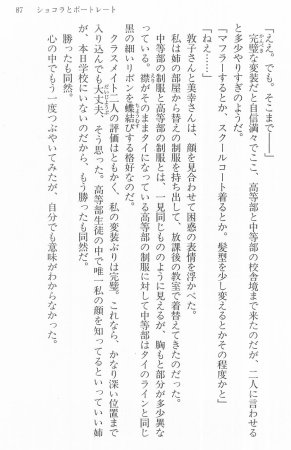 87　ショコラとポートレート
「ええ。でも、そこまで――」
完璧な変装だと自信満々でここ、高等部と中等部の校舎境まで来たのだが、二人に言わせる
と多少やりすぎのようだ。
「マフラーするとか、スクールコート着るとか。髪型を少し変えるとかその程度かと」
「ねえ……」
敦子さんと美幸さんは、顔を見合わせて困惑の表情を浮かべた。
私は姉の部屋から替えの制服を持ち出して、放課後の教室で着替えてきたのだった。
中等部の制服と高等部の制服とは、一見同じもののように見えるが、胸もと部分が多少異な
っている。襟がそのままタイになっている高等部の制服に対して中等部はタイのラインと同じ
線の細いリボンを蝶結びする格好なのだ。
クラスメイト二人の評価はともかく、私の変装ぶりは完璧。これなら、かなり深い位置まで
入り込んでも大丈夫。そう思った。高等部生徒の中で唯一私の顔を知ってるといっていい姉
が、本日学校にいないのだから、もう勝ったも同然だ。
勝ったも同然。
心の中でもう一度つぶやいてみたが、自分でも意味がわからなかった。